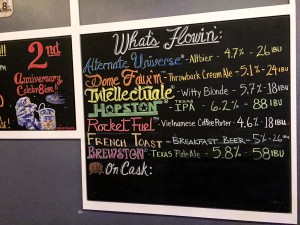 2nd
Anniversary
Celebration!
What's Flowin':
Alternate Universe - Altbier - 4.7% - 26 IBU
Dome Faux'm - Throwback Cream Ale - 5.1% - 24 IBU
Intellectuale - Witty Blonde - 5.7% - 18 IBU
HOPSTON - TEXAS IPA - 6.2% - 88 IBU
Rocket Fuel - Vietnamese Coffee Porter - 4.6% - 18 IBU
FRENCH TOAST - BREAKFAST BEER - 5% - IBU
BREWSTON - TEXAS Pale Ale - 5.8% - 58 IBU
On Cask: